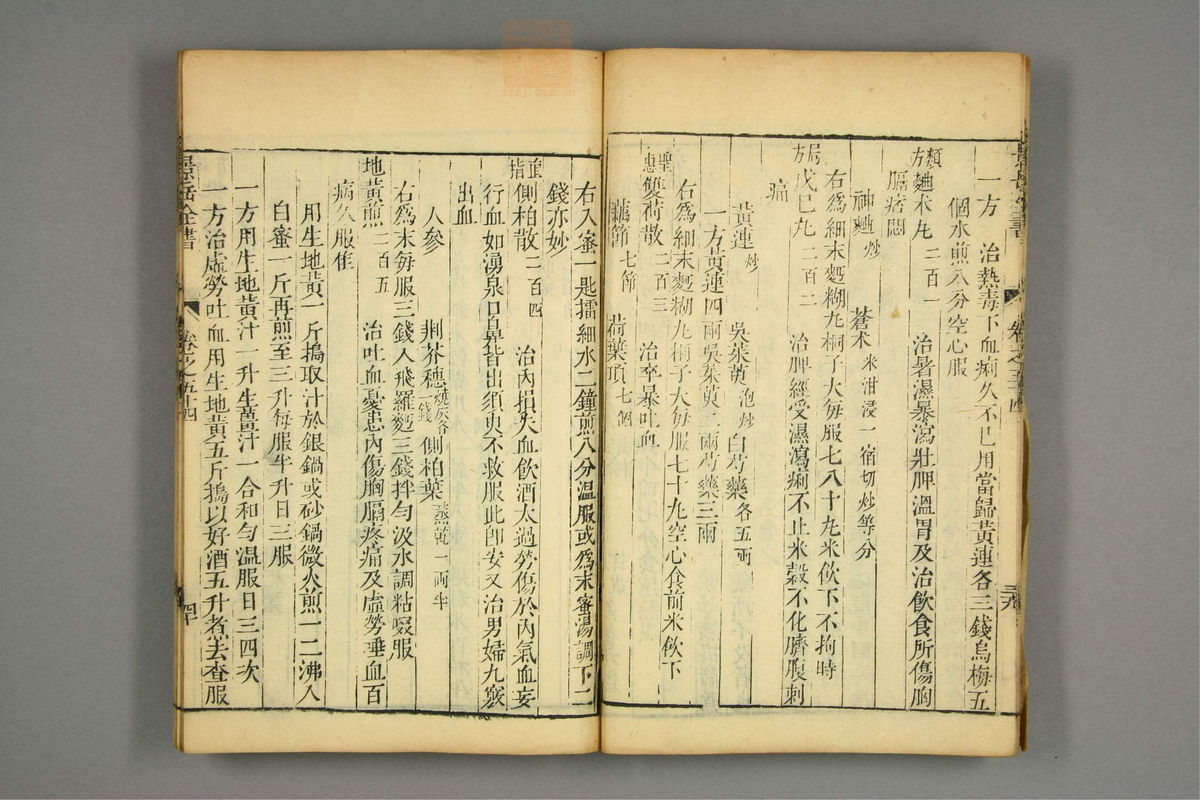 一方　治熱毒下血痢久不已用當歸黃連各三錢烏梅五
個水煎八分空心服
類方麯朮丸二百一　治暑濕暴瀉壯脾溫胃及治飲食所傷胸
膈痞悶
神麯炒　蒼朮米泔浸一宿切炒等分
右爲細末麪糊丸桐子大每服七八十丸米飲下不拘時
局方戊巳丸二百二　治脾經受濕瀉痢不止米穀不化臍腹刺
痛
黃連炒　吳茱萸泡炒　白芍藥各五兩
一方黃連四兩吳茱萸二兩芍藥三兩
右爲細末麪糊丸桐子大每服七十丸空心食前米飲下
聖惠雙荷散二百三　治卒暴吐血
藕節七節　荷葉頂七個
右入蜜一匙擂細水二鐘煎八分溫服或爲末蜜湯調下二
錢亦妙
直指側柏散二百四　治內損失血飲酒太過勞傷於內氣血妄
行血如湧泉口鼻皆出須臾不救服此卽安又治男婦九竅
出血
人參　荊芥穗燒灰各一錢　側柏葉蒸乾一兩半
右爲末每服三錢入飛羅麪三錢拌勻汲水調粘啜服
地黃煎二百五　治吐血憂恚內傷胸膈疼痛及虛勞唾血百
病久服佳
用生地黃一斤搗取汁於銀鍋或砂鍋微火煎一二沸入
白蜜一斤再煎至三升每服半升日三服
一方用生地黃汁一升生薑汁一合和勻溫服日三四次
一方治虛勞吐血用生地黃五斤搗以好酒五升煮去柤服
景岳全書　卷之五十四